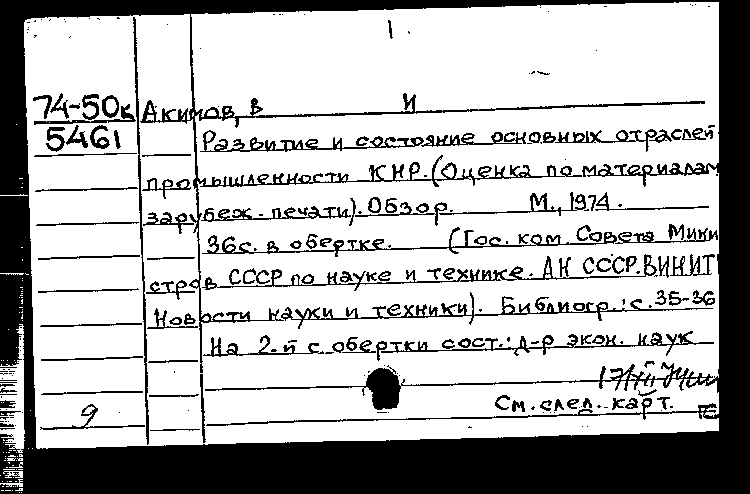 1.
74-50к Акимов, В И
5461 Развитие и состояние основных отраслей
промышленности КНР. (Оценка по материалам
зарубеж. печати). Обзор. М., 1974.
36с. в обертке. (Гос. ком. Совета Мини
стров СССР по науке и технике. АН СССР. ВИНИТИ
Новости науки и техники). Библиогр.: с. 35-36
На 2-й с обертки сост.: д-р экон. наук
См. след. карт.
9